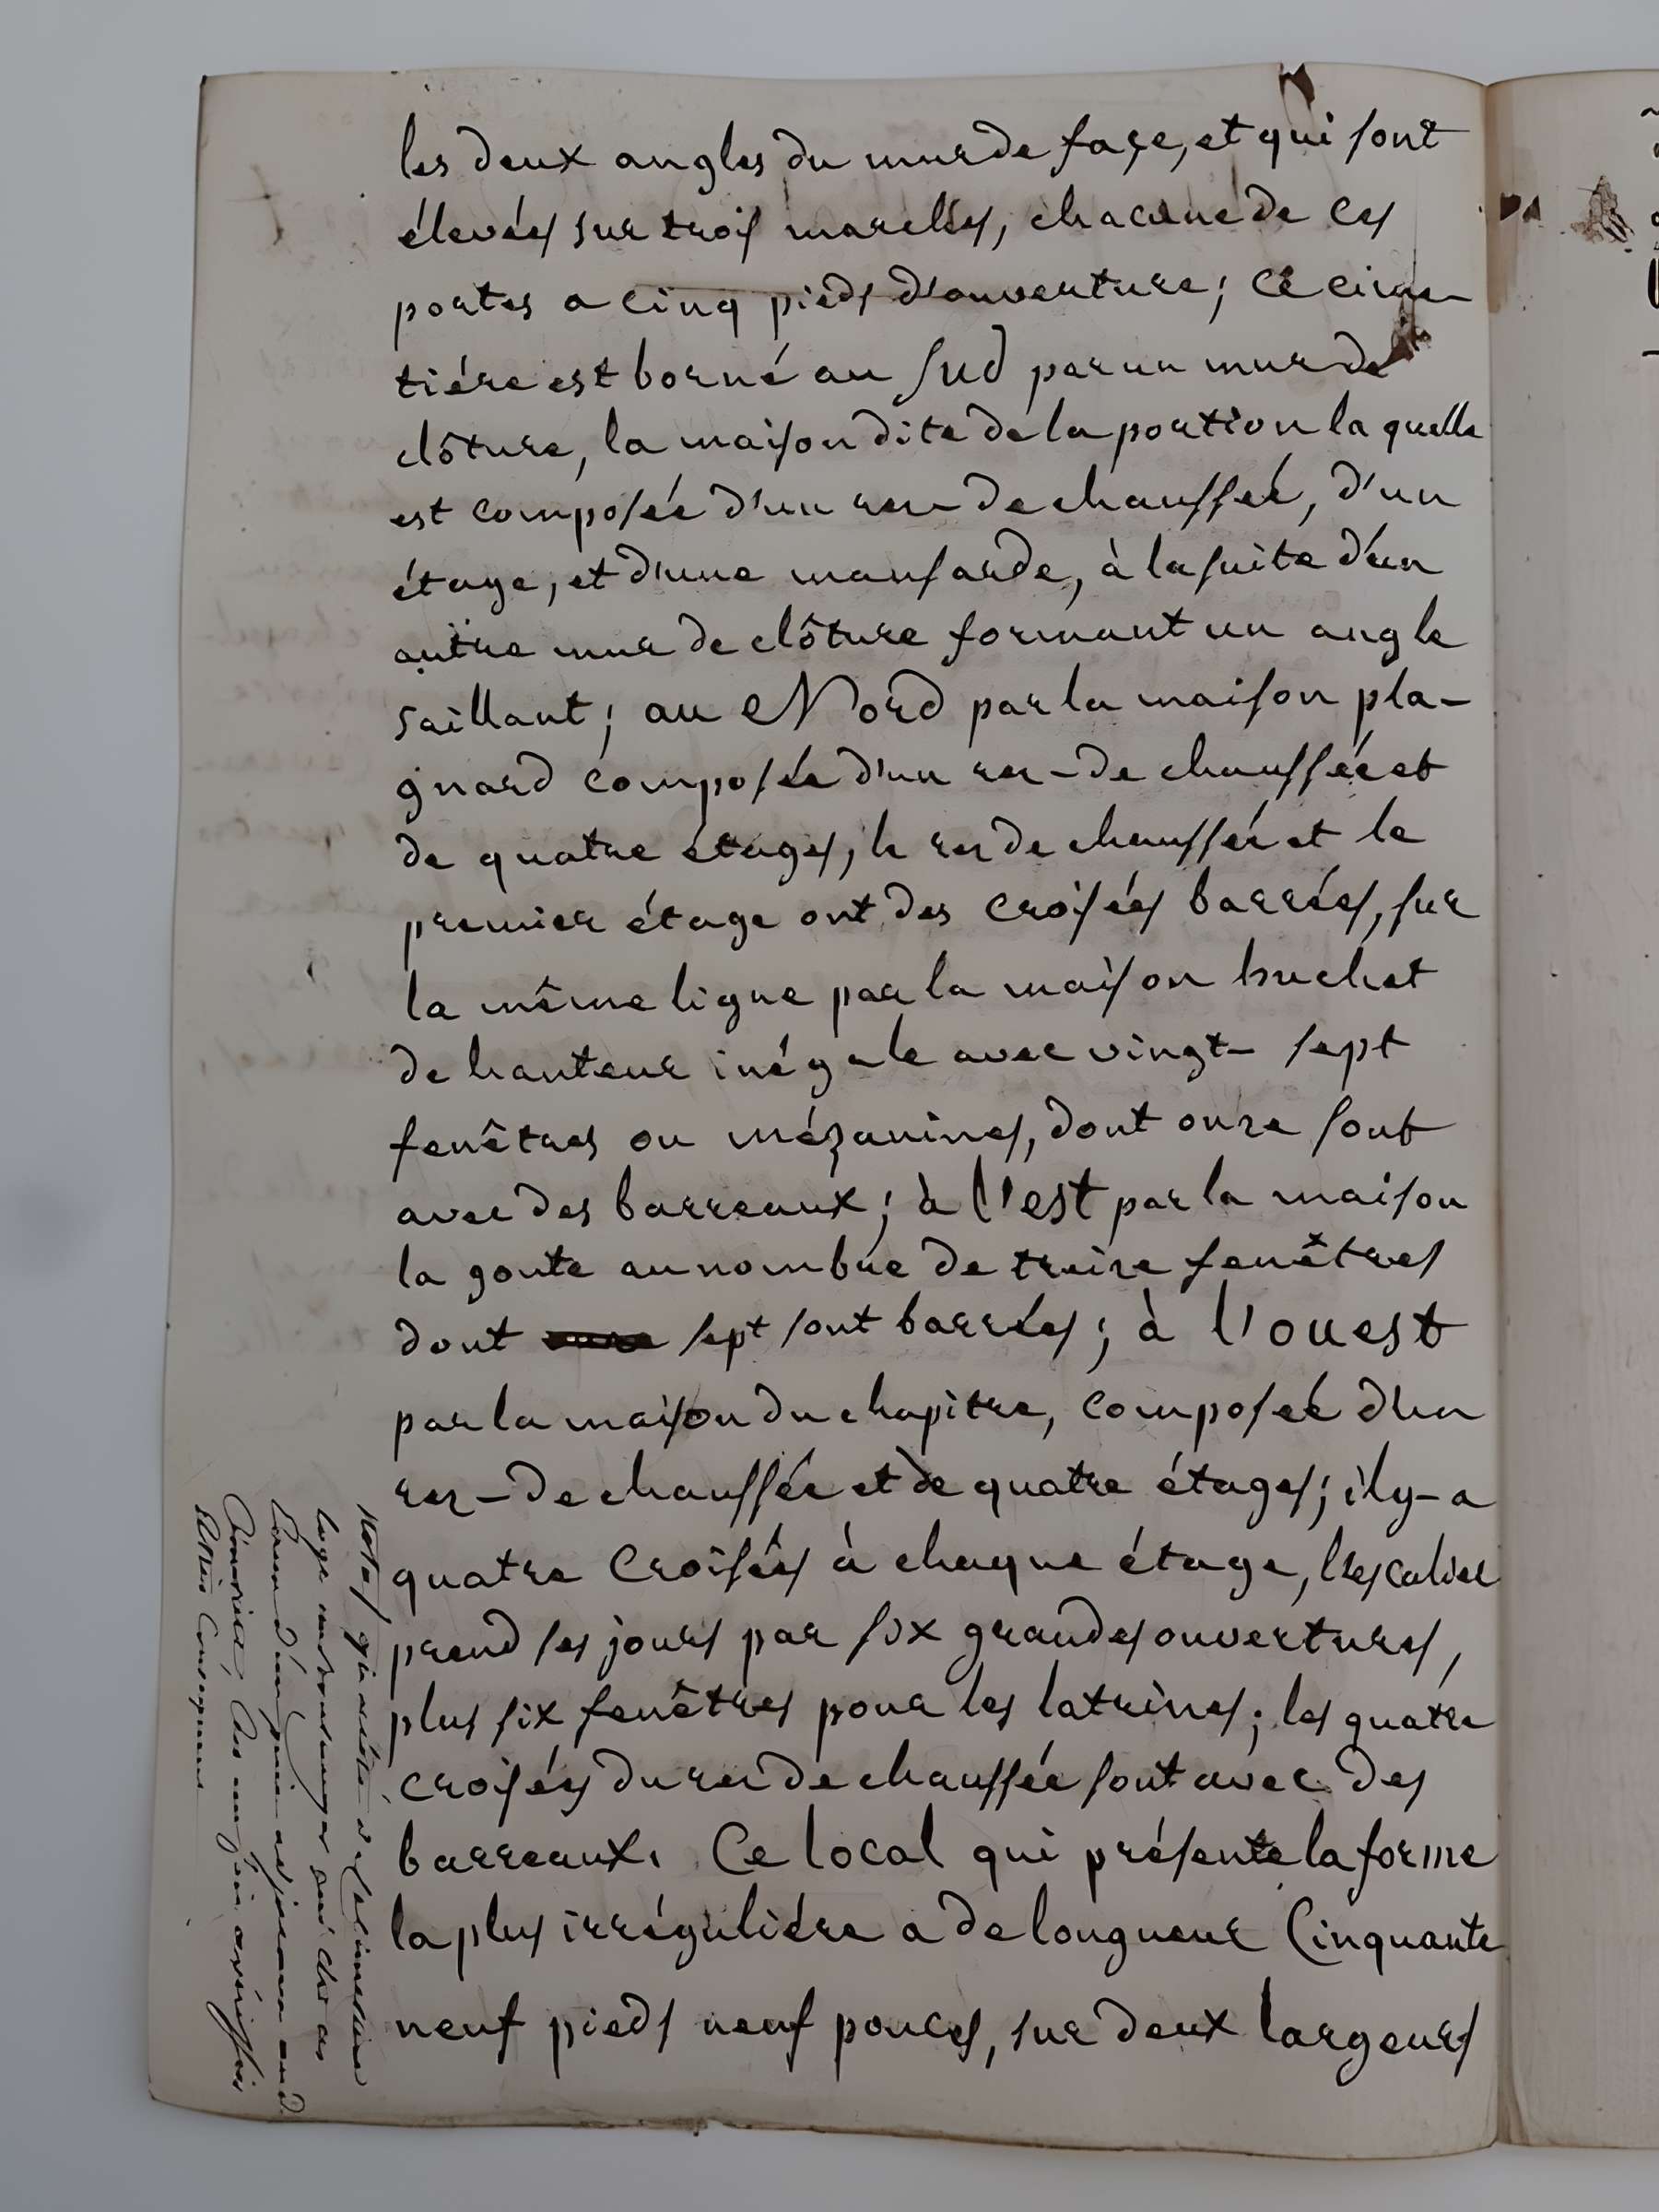 les deux angles du mur de façe, et qui sont
élevées sur trois marches, chacune de ces
portes a cinq pieds d'ouverture; ce cime-
tiére est borné au sud par un mur de
clôture, la maison dite de la portion la quelle
est composée d'un rez-de chaussée, d'un
étage, et d'une mansarde, à la suite d'un
autre mur de clôture formant un angle
saillant; au Nord par la maison pla-
gnard composée d'un rez-de chaussée et
de quatre étages, le rez de chaussée et le
premier étage ont des croisées barrées, sur
la même ligne par la maison bruchet
de hauteur inégale avec vingt-sept
fenêtres ou mézanines, dont onze sont
avec des barreaux; à l'est par la maison
la goute au nombre de treize fenêtres
dont sept sont barrées; à l'ouest
par la maison du chapitre, composée d'un
rez-de chaussée et de quatre étages; il y-a
quatre croisées à chaque étage, l'escalier
prend ses jours par six grandes ouvertures,
plus six fenêtres pour les latrines; les quatre
croisées du rez de chaussée sont avec des
barreaux. Ce local qui présente la forme
la plus irréguliére a de longueur Cinquante
neuf pieds neuf pouces, sur deux largeurs
Nota qu'à côté de ce cimetière